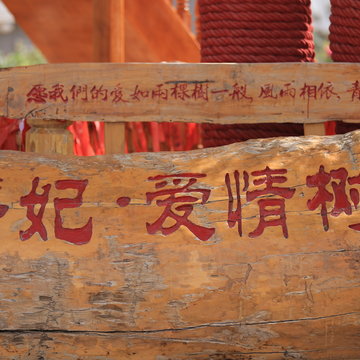 愿我們的爱如兩棵樹一般,風雨相依、
妃·爱情树